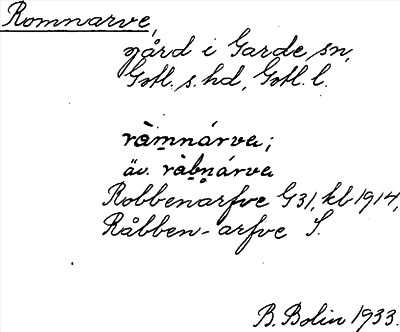 Romnarve,
gård i Garde sn,
Gotl. s. hd, Gotl. l.
ràmnárva;
äv. ràbnárva
Robbenarfve G31, kb 1914,
Råbben-arfve S.
B. Bolin 1933.